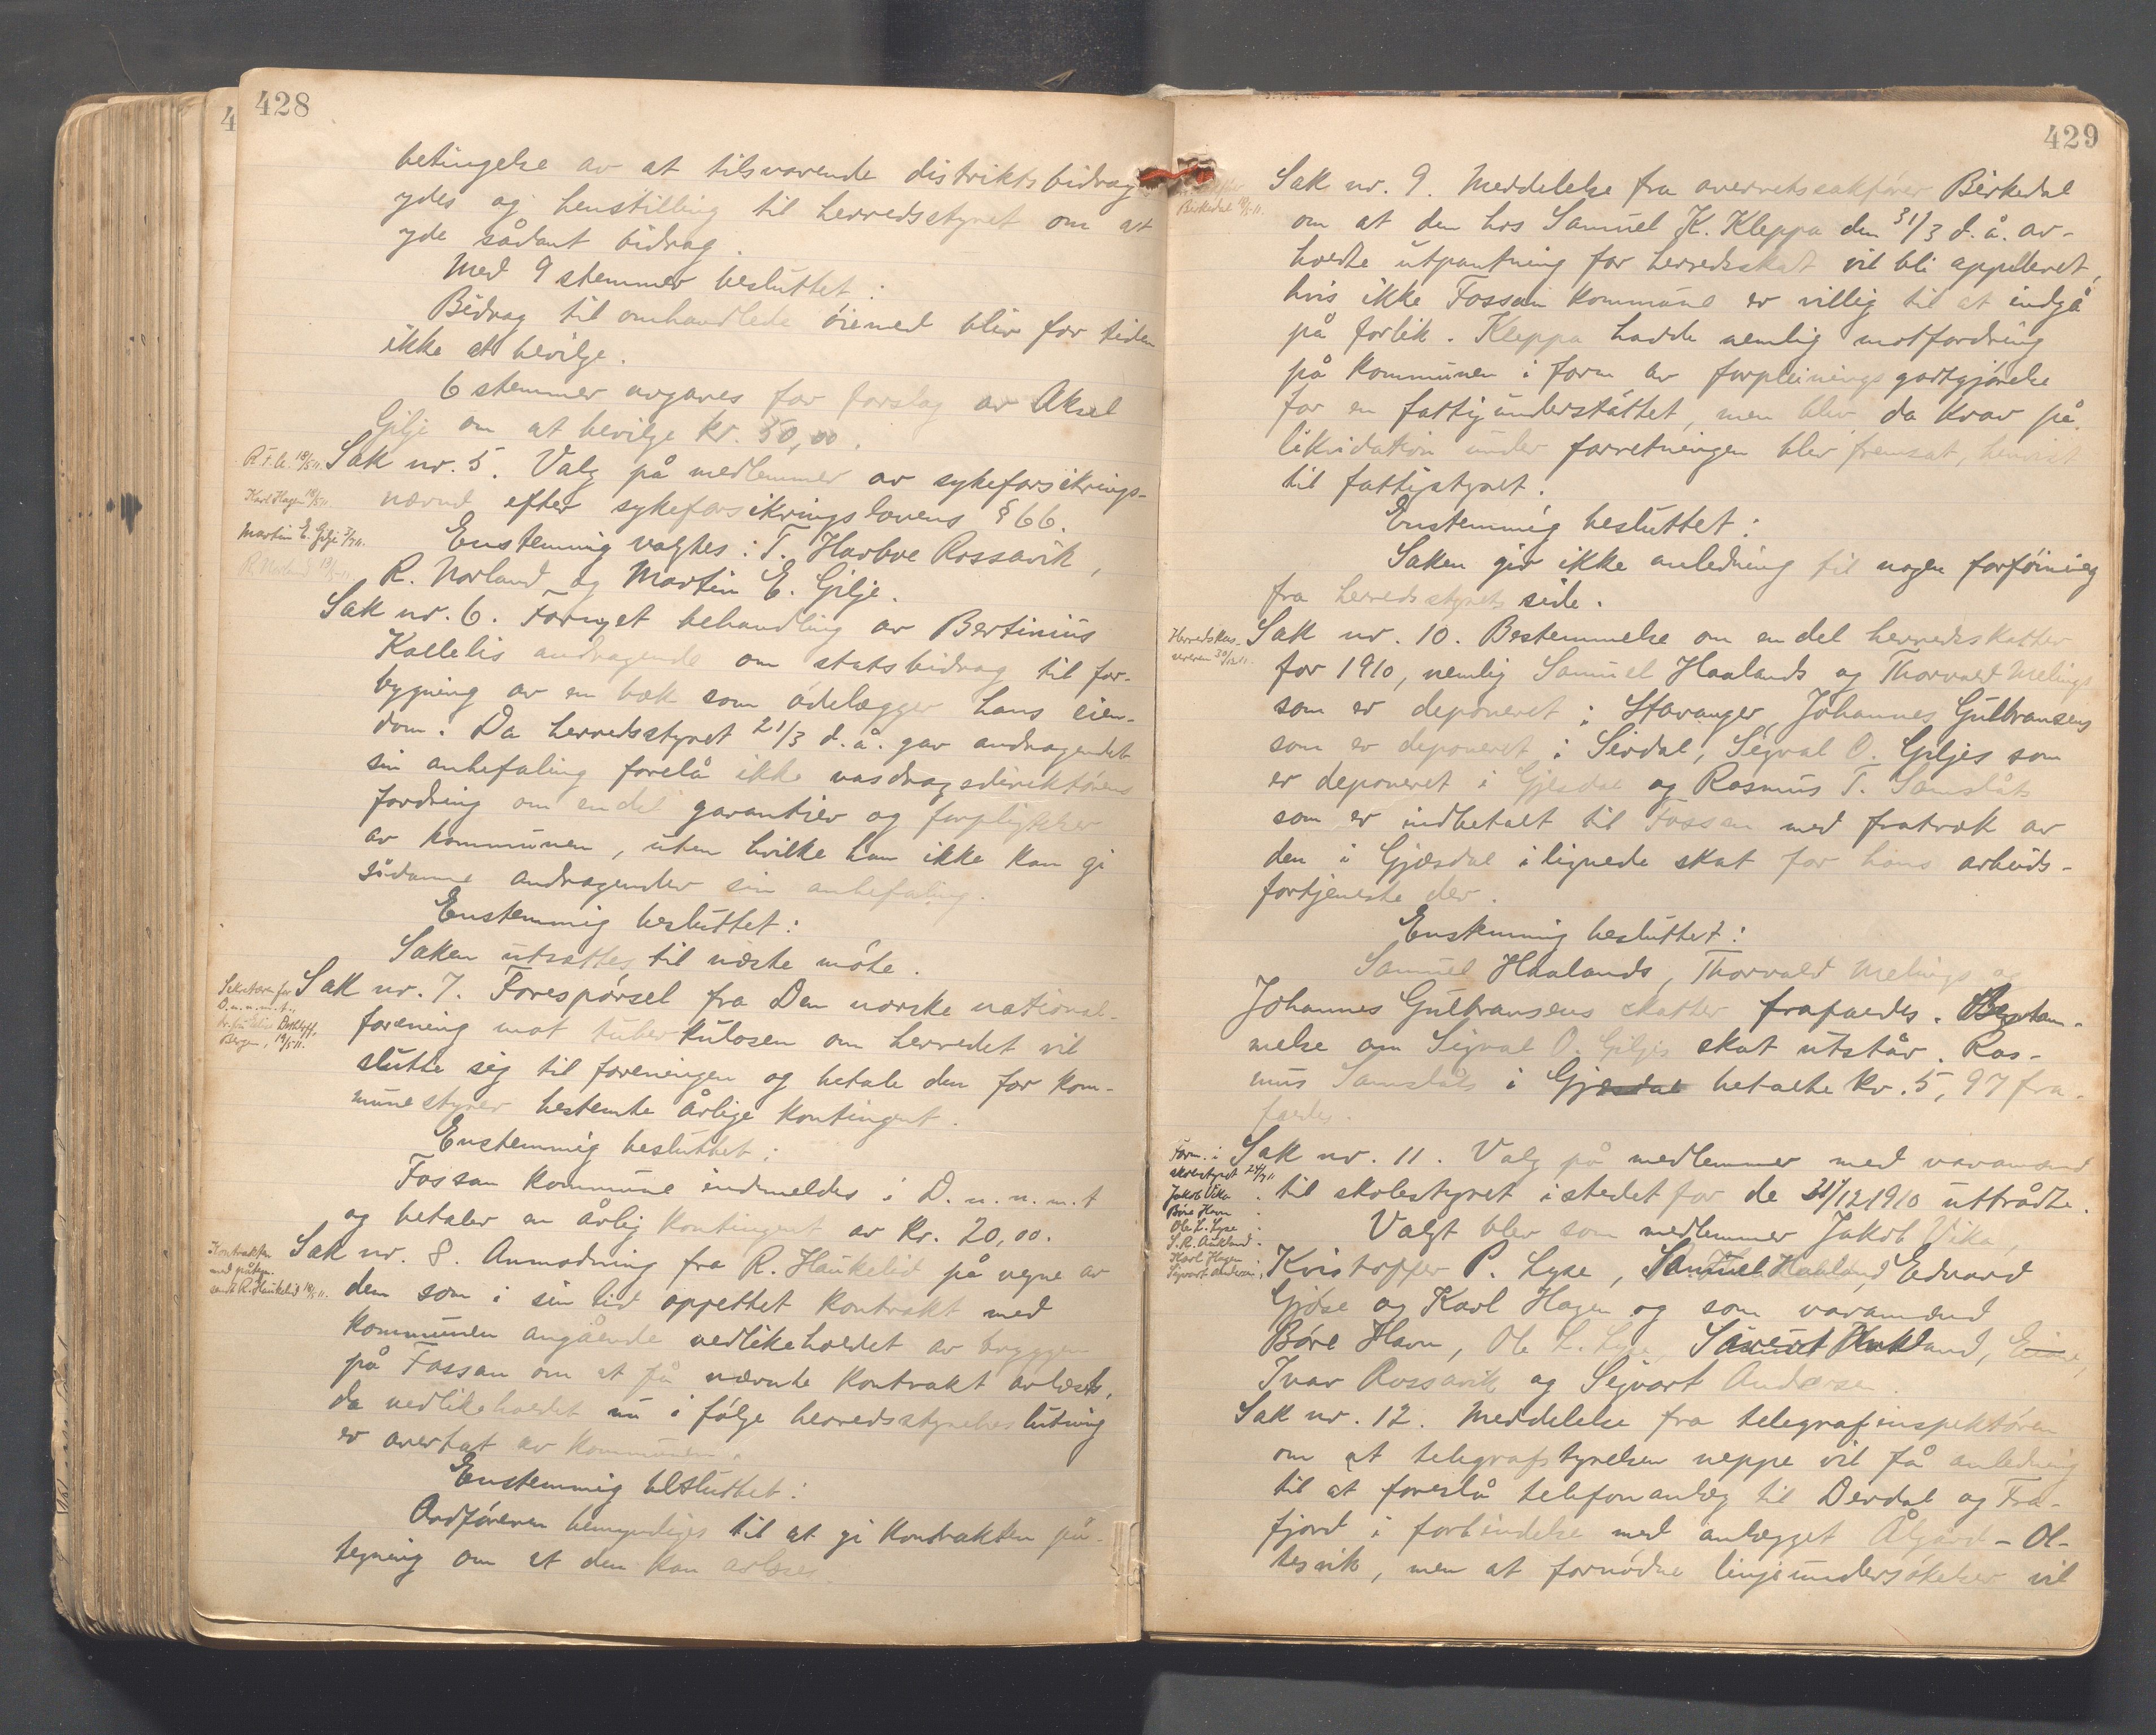 428
betingelse av at tilsvarende distriktsbidrag
ydes og henstilling til herredsstyret om at
yde sådant bidrag.
Med 9 stemmer besluttet:
Bidrag til omhandlede öiemed blir for tiden
ikke at bevilge.
6 stemmer avgaves for forslag av Aksel
Gilje om at bevilge kr. 50,00.
R.T.A. 18/5 11.
Sak nr. 5. Valg på medlemmer av sykeforsikrings-
Karl Hagen 18/5 11.
nævnd efter sykeforsikringslovens § 66.
Martin E. Gilje 3/7 11.
Enstemmig valgtes: T. Harboe Rossavik,
R. Norland 19/5 11.
R. Norland og Martin E. Gilje.
Sak nr. 6. Fornyet behandling av Bertinius
Kallelis andragende om statsbidrag til for-
bygning av en bæk som ödelægger hans eien-
dom. Da herredsstyret 21/3 d.å. gav andragendet
sin anbefaling forelå ikke vasdragsdirektörens
fordring om endel garantier og forpligtelser
av kommunen, uten hvilke han ikke kan gi
sådanne andragender sin anbefaling.
Enstemmig besluttet:
Saken utsættes til næste möte.
Sekretæren for
D.n.n.m.t.,
Bergen, 19/5 11.
Sak nr. 7. Forespörsel fra Den norske national-
forening mot tuberkulosen om herredet vil
slutte sig til foreningen og betale den for kom-
munestyrer bestemte årlige kontingent.
Enstemmig besluttet:
Fossan kommune indmeldes i D.n.n.m.t
og betaler en årlig kontingent av kr. 20,00.
Kontrakten
med påtegn.
sendt R. Haukelid 19/5 11.
Sak nr. 8. Anmodning fra R. Haukelid på vegne av
dem som i sin tid oprettet kontrakt med
kommunen angående vedlikeholdet av bryggen
på Fossan om at få nævnte kontrakt avlæst,
da vedlikeholdet nu i fölge herredsstyrebeslutning
er overtat av kommunen.
Enstemmig besluttet:
Ordföreren bemyndiges til at gi kontrakten på-
tegning om at den kan avlöses.
429
Birkedal 19/5 11.
Sak nr. 9. Meddelelse fra overretssakförer Birkedal
om at den hos Samuel K. Kleppa den 31/3 d.å. av-
holdte utpantning for herredsskat vil bli appelleret,
hvis ikke Fossan kommune er villig til at indgå
på forlik. Kleppa hadde nemlig motfordring
på kommunen i form av forpleiningsgodtgjörelse
for en fattigunderstöttet, men blev da krav på
likvidation under forretningen blev fremsat, henvist
til fattigstyret.
Enstemmig besluttet:
Saken gir ikke anledning til nogen forföining
fra herredsstyrets side.
Herredskas-
sereren 30/12 11.
Sak nr. 10. Bestemmelse om en del herredsskatter
for 1910, nemlig Samuel Haalands og Thorvald Melings
som er deponeret i Stavanger, Johannes Gulbransens
som er deponeret i Sirdal, Sigval O. Giljes som
er deponeret i Gjesdal og Rasmus T. Samslåts
som er indbetalt til Fossan med fratræk av
den i Gjæsdal ilignede skat for hans arbeids-
fortjeneste der.
Enstemmig besluttet:
Samuel Haalands, Thorvald Melings og
Johannes Gulbransens skatter frafaldes. Bestem-
melse om Sigval O. Giljes skat utstår. Ras-
mus Samslåts i Gjæsdal betalte kr. 5,97 fra-
faldes.
Form. i
skolestyret 24/7 11.
Jakob Vika
Böre Havn
Ole L. Lyse
S. R. Aukland
Karl Hagen
Sigvart Andersen
Sak nr. 11. Valg på medlemmer med varamænd
til skolestyret istedet for de 31/12 1910 uttrådte.
Valgt blev som medlemmer Jakob Vika,
Kristoffer P. Lyse, Samuel Haaland, Edvard
Gjöse og Karl Hagen og som varamænd
Böre Havn, Ole L. Lyse, Aukland,
Ivar Rossavik og Sigvart Andersen.
Sak nr. 12. Meddelelse fra telegrafinspektören
om at telegrafstyrelsen neppe vil få anledning
til at foreslå telefonanlæg til Derdal og Fra-
fjord i forbindelse med anlægget Ålgård - Ol-
tesvik, men at fornödne linjeundersökelser vil